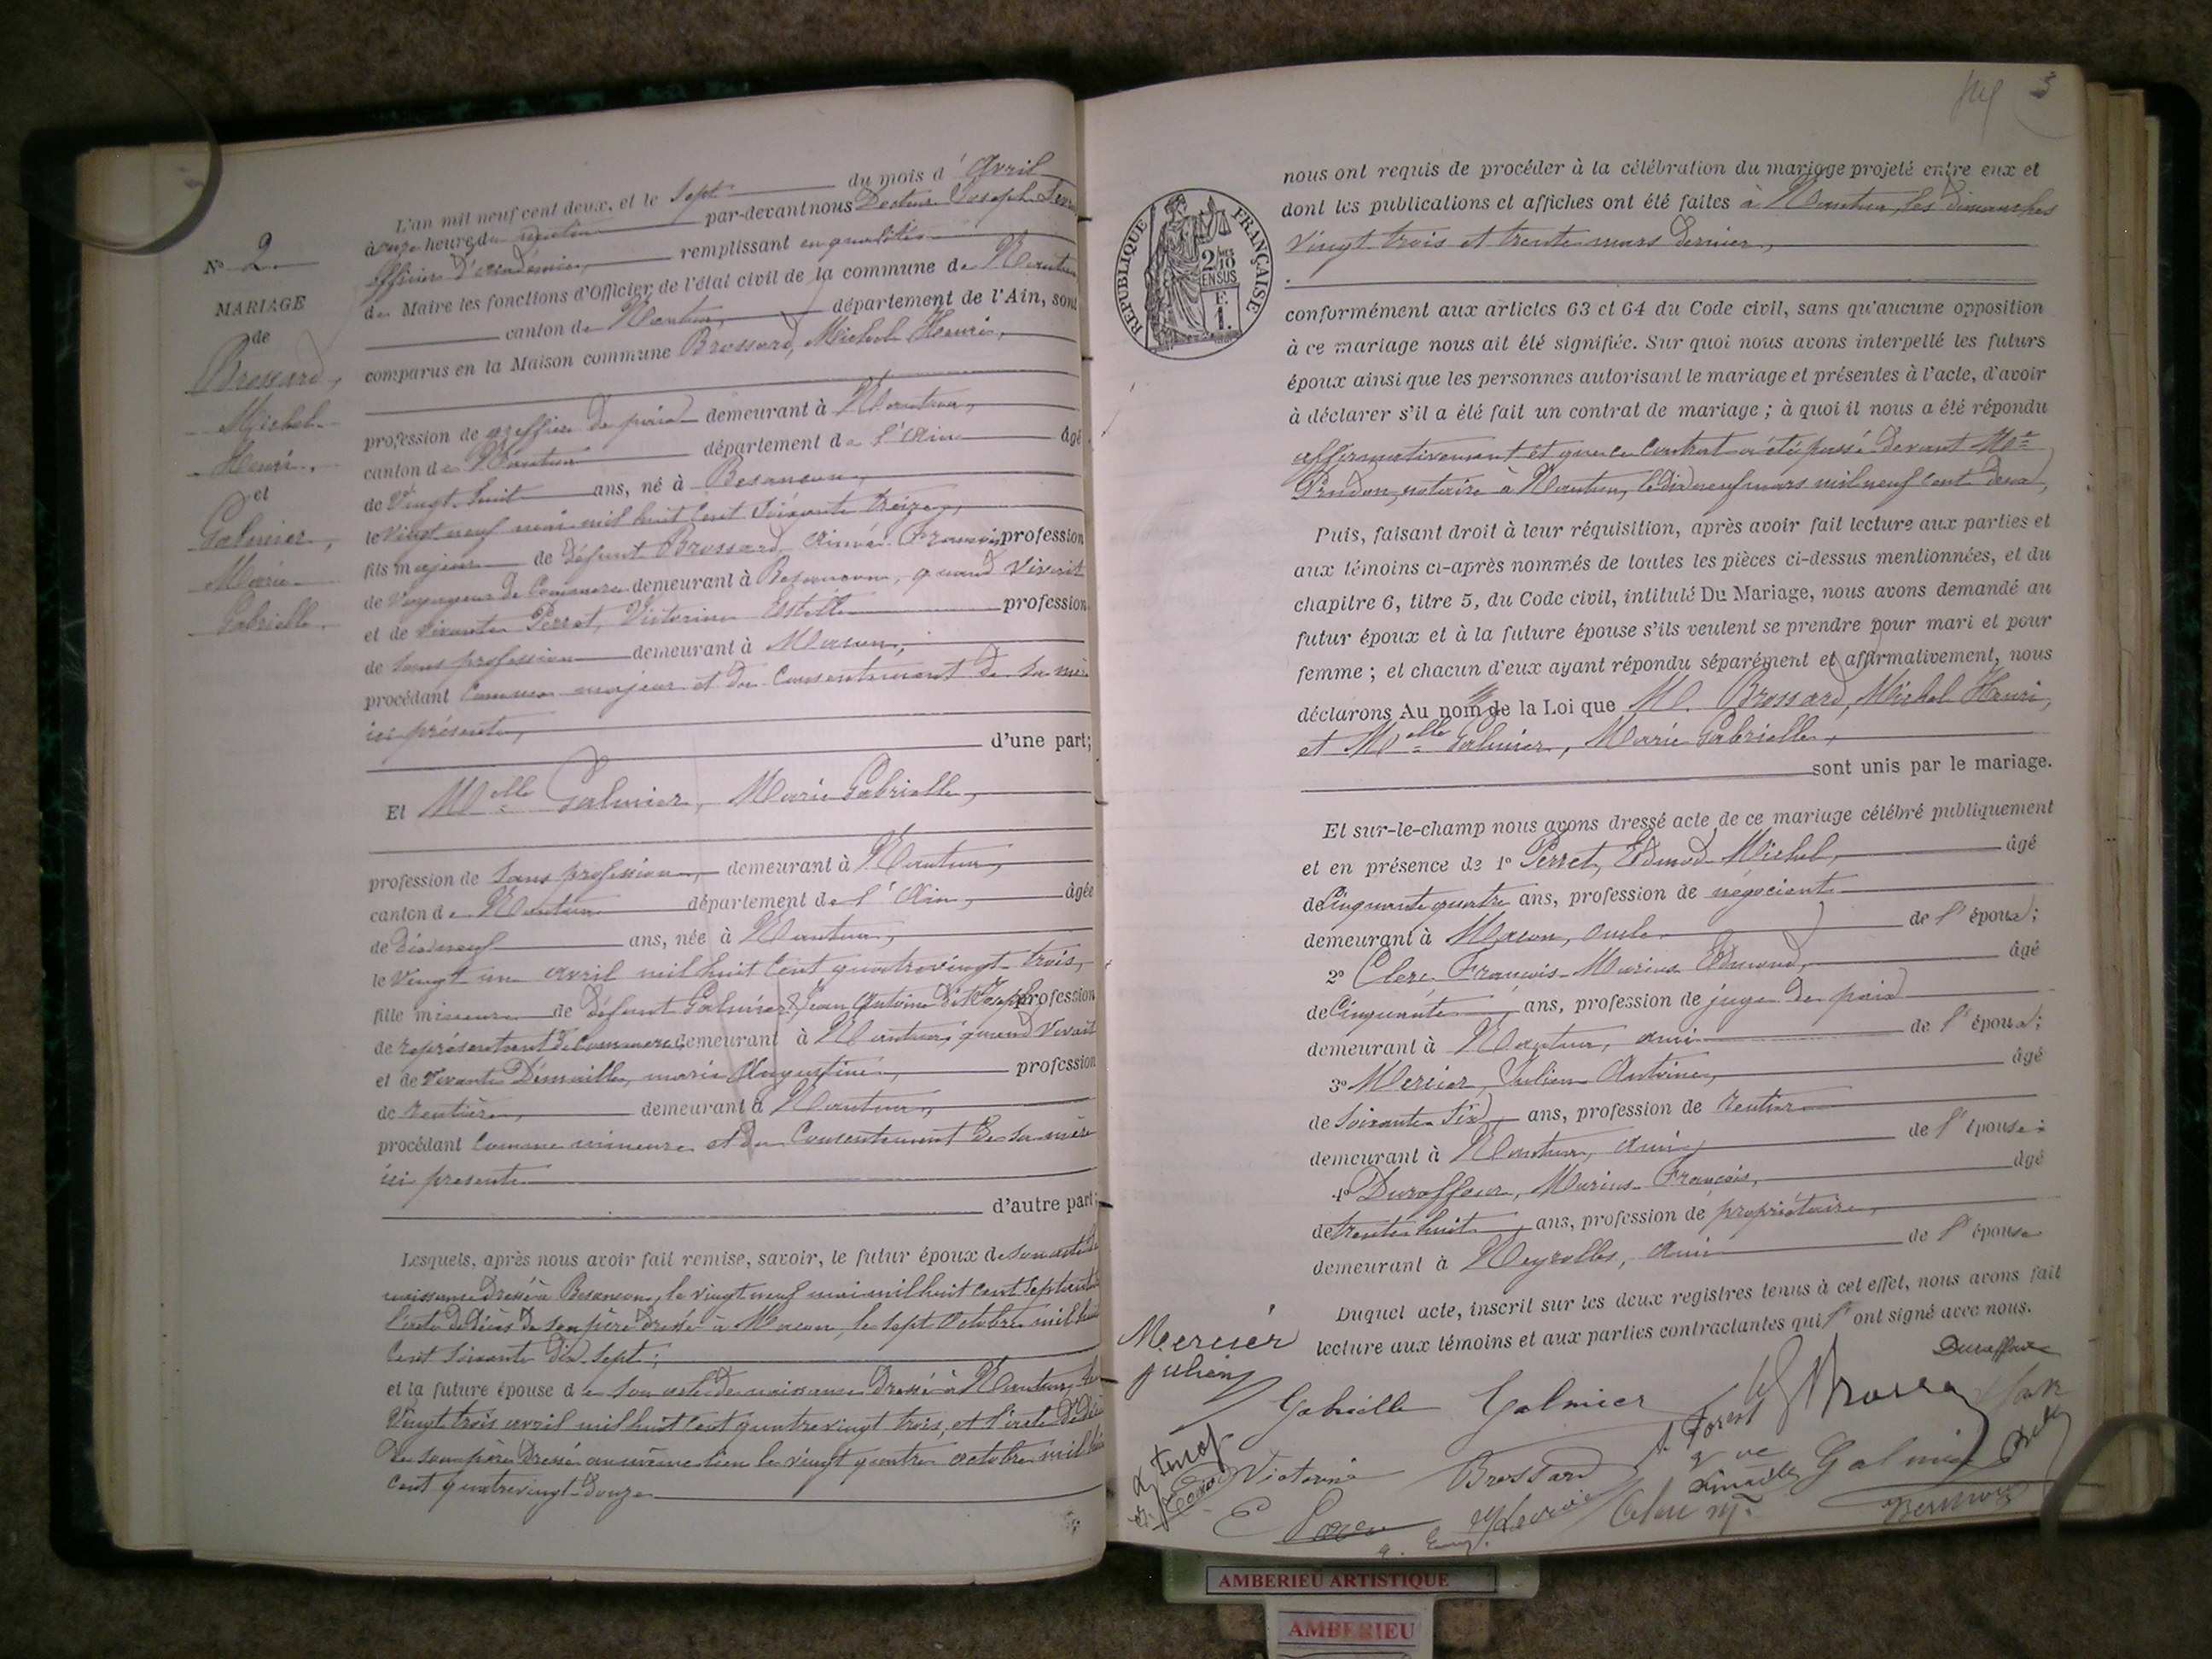 L'an mil neuf cent deux, et le sept du mois d'Avril
à onze heure du matin par-devant nous Docteur Joseph
Officier d'académie, remplissant en qualité
de Maire les fonctions d'Officier de l'état civil de la commune de Nantua
canton de Nantua, département de l'Ain, sont
comparus en la Maison commune Brossard, Michel Henri,
profession de greffier de paix demeurant à Nantua,
canton de Nantua département de l'Ain âgé
de vingt-huit ans, né à Besançon,
le vingt neuf mai mil huit cent soixante treize,
fils majeur de défunt Brossard Aimé François, profession
de Voyageur de Commerce demeurant à Besançon, quand vivait
et de vivante Perret, Victorine Estelle profession
de sans profession demeurant à Macon,
procédant comme majeur et du consentement de sa mère
ici présente,
d'une part;
Et Melle Galmier, Marie Gabrielle,
profession de sans profession, demeurant à Nantua,
canton de Nantua département de l'Ain, âgée
de dix-neuf ans, née à Nantua,
le vingt un avril mil huit cent quatrevingt-trois,
fille mineure de défunt Galmier, Jean Antoine dit Joseph profession
de représentant de commerce, demeurant à Nantua, quand vivait
et de vivante marie Augustine, profession
de rentière, demeurant à Nantua,
procédant comme mineure et du consentement de sa mère
ici présente
d'autre part;
Lesquels, après nous avoir fait remise, savoir, le futur époux de son acte de
naissance dressé à Besançon, le vingt neuf mai mil huit cent septante
l'acte de décès de son père dressé à Macon, le sept Octobre mil huit
cent soixante dix-sept;
et la future épouse de son acte de naissance dressé à Nantua, le
vingt trois avril mil huit cent quatrevingt trois, et l'acte de décès
de son père dressé au même lieu le vingt quatre octobre mil huit
cent quatrevingt-douze
No 2
MARIAGE
de
Brossard,
Michel
Henri,
et
Galmier,
Marie
Gabrielle.
3
RÉPUBLIQUE FRANÇAISE
2/10 EN SUS
F. 1.
nous ont requis de procéder à la célébration du mariage projeté entre eux et
dont les publications et affiches ont été faites à Nantua, les dimanches
vingt trois et trente mars dernier,
conformément aux articles 63 et 64 du Code civil, sans qu'aucune opposition
à ce mariage nous ait été signifiée. Sur quoi nous avons interpellé les futurs
époux ainsi que les personnes autorisant le mariage et présentes à l'acte, d'avoir
à déclarer s'il a été fait un contrat de mariage ; à quoi il nous a été répondu
affirmativement et que ce contrat a été passé devant Me
Prudon, notaire à Nantua, le dix neuf mars mil neuf cent deux,
Puis, faisant droit à leur réquisition, après avoir fait lecture aux parties et
aux témoins ci-après nommés de toutes les pièces ci-dessus mentionnées, et du
chapitre 6, titre 5, du Code civil, intitulé Du Mariage, nous avons demandé au
futur époux et à la future épouse s'ils veulent se prendre pour mari et pour
femme ; et chacun d'eux ayant répondu séparément et affirmativement, nous
déclarons Au nom de la Loi que M. Brossard, Michel Henri,
et Melle Galmier, Marie Gabrielle,
sont unis par le mariage.
Et sur-le-champ nous avons dressé acte de ce mariage célébré publiquement
et en présence de 1o Perret, Edmod Michel, âgé
de Cinquante quatre ans, profession de négociant
demeurant à Macon, oncle de l'époux;
2o Clerc François-Marius Edmond, âgé
de Cinquante ans, profession de juge de paix
demeurant à Nantua, ami de l'époux;
3o Mercier, Julien Antoine, âgé
de soixante six, ans, profession de rentier
demeurant à Nantua, ami de l'épouse;
4o Duraffour, Marius-François, âgé
de trente huit, ans, profession de propriétaire,
demeurant à Neyrolles, ami de l'épouse
Duquel acte, inscrit sur les deux registres tenus à cet effet, nous avons fait
lecture aux témoins et aux parties contractantes qui l'ont signé avec nous.
Mercier
julien
Duraffour
Gabrielle Galmier
Brossa
A. Forest
Victorine Brossard
Vve Galmier
AMBERIEU ARTISTIQUE
AMBERIEU